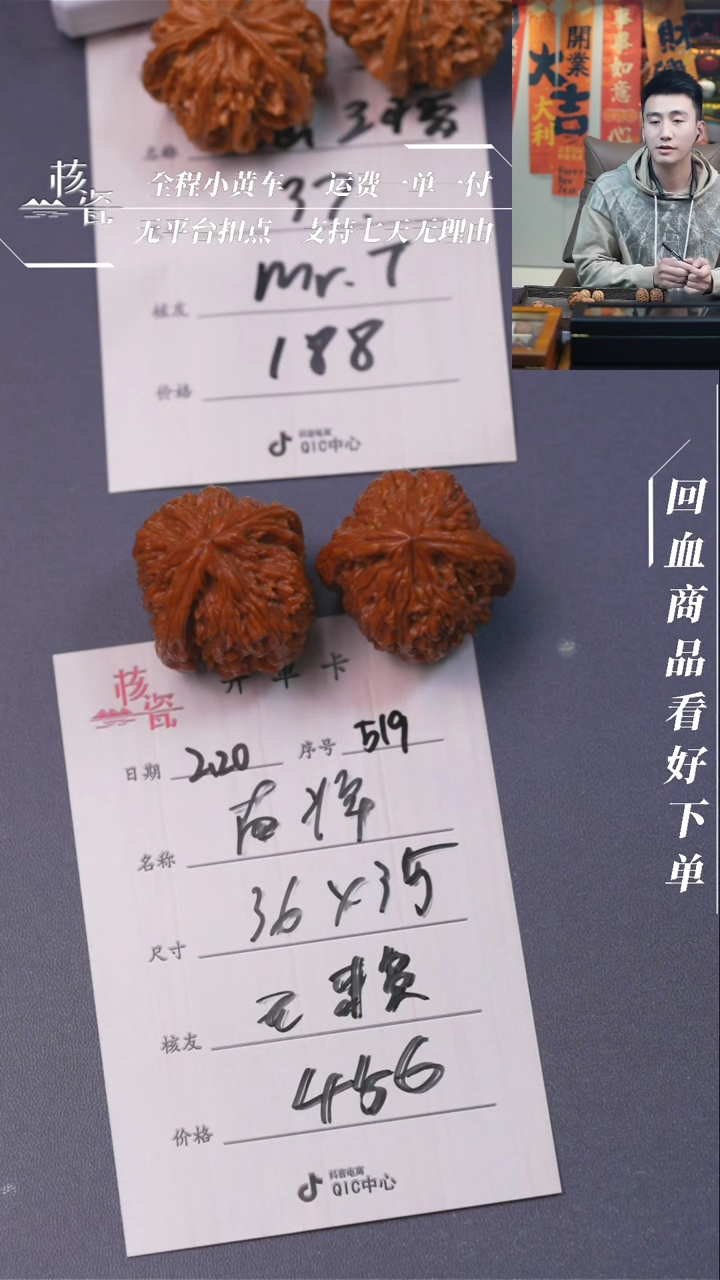 名称
核瓷
全程小黄车 运费一单一付
37.
无平台扣点 支持七天无理由
核友 Mr. T
价格 188
抖音电商
QIC中心
開業
大吉
大利
事事如意
心
财
回血商品看好下单
核瓷
开单卡
日期 2.20 序号 519
名称
尺寸 36×35
核友
价格 456
抖音电商
QIC中心